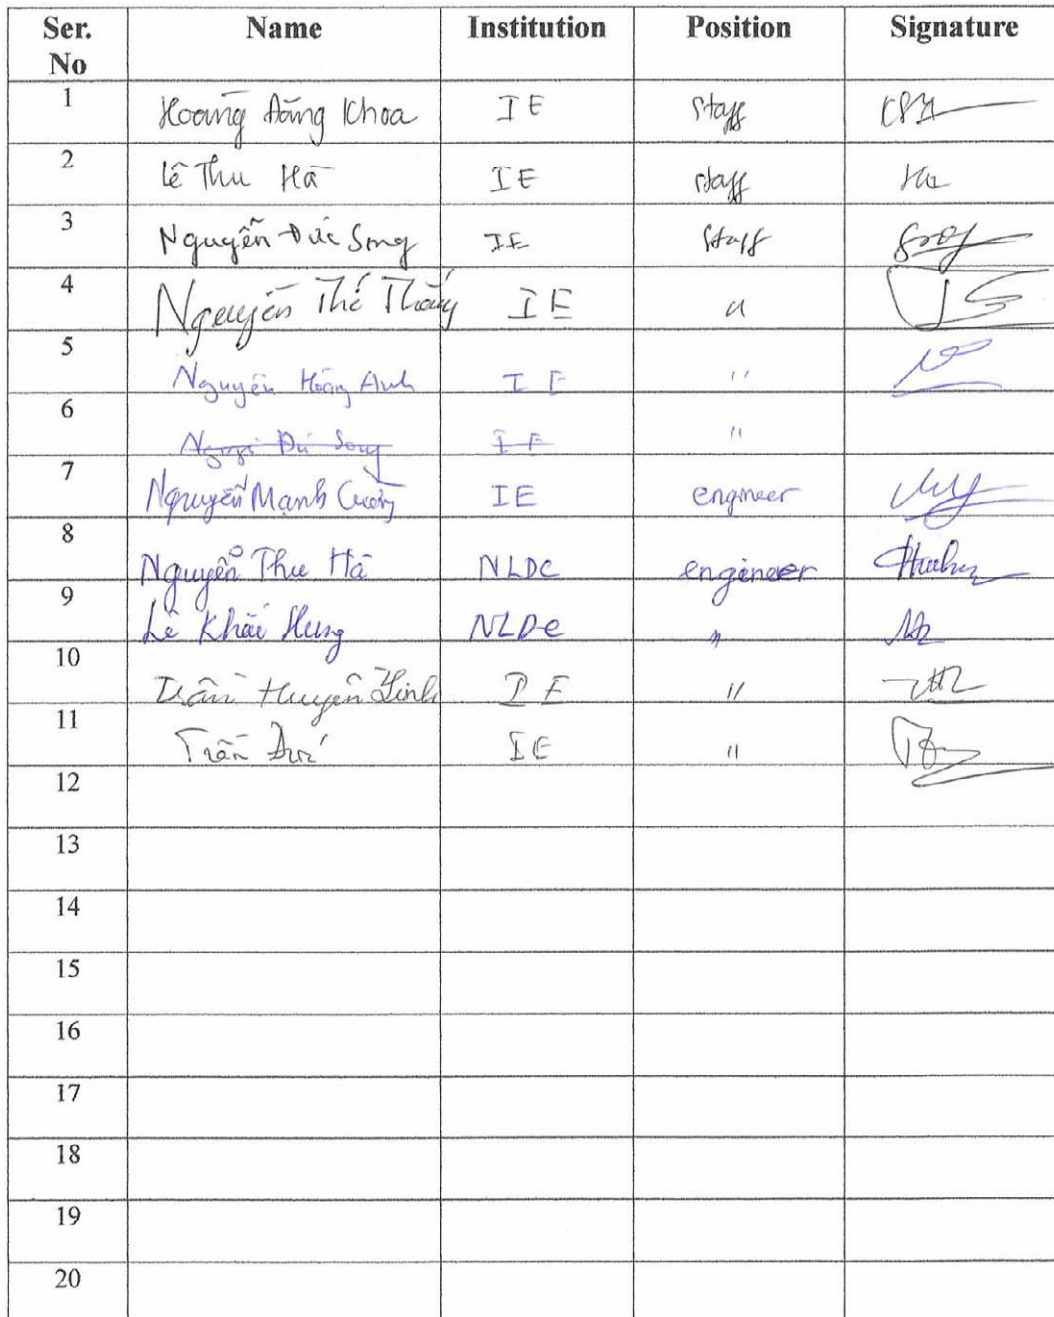 Ser. No Name Institution Position Signature
1 Hoàng Đăng Khoa IE Staff
2 Lê Thu Hà IE staff Ha
3 Nguyễn Đức Song IE Staff Song
4 Nguyễn Thế Thắng IE "
5 Nguyễn Hoàng Anh IE "
6 Nguyễn Đức Song IE "
7 Nguyễn Mạnh Cường IE engineer
8 Nguyễn Thu Hà NLDC engineer
9 Lê Khắc Hưng NLDC "
10 Trần Huyền Linh IE "
11 Trần Đức IE "
12
13
14
15
16
17
18
19
20